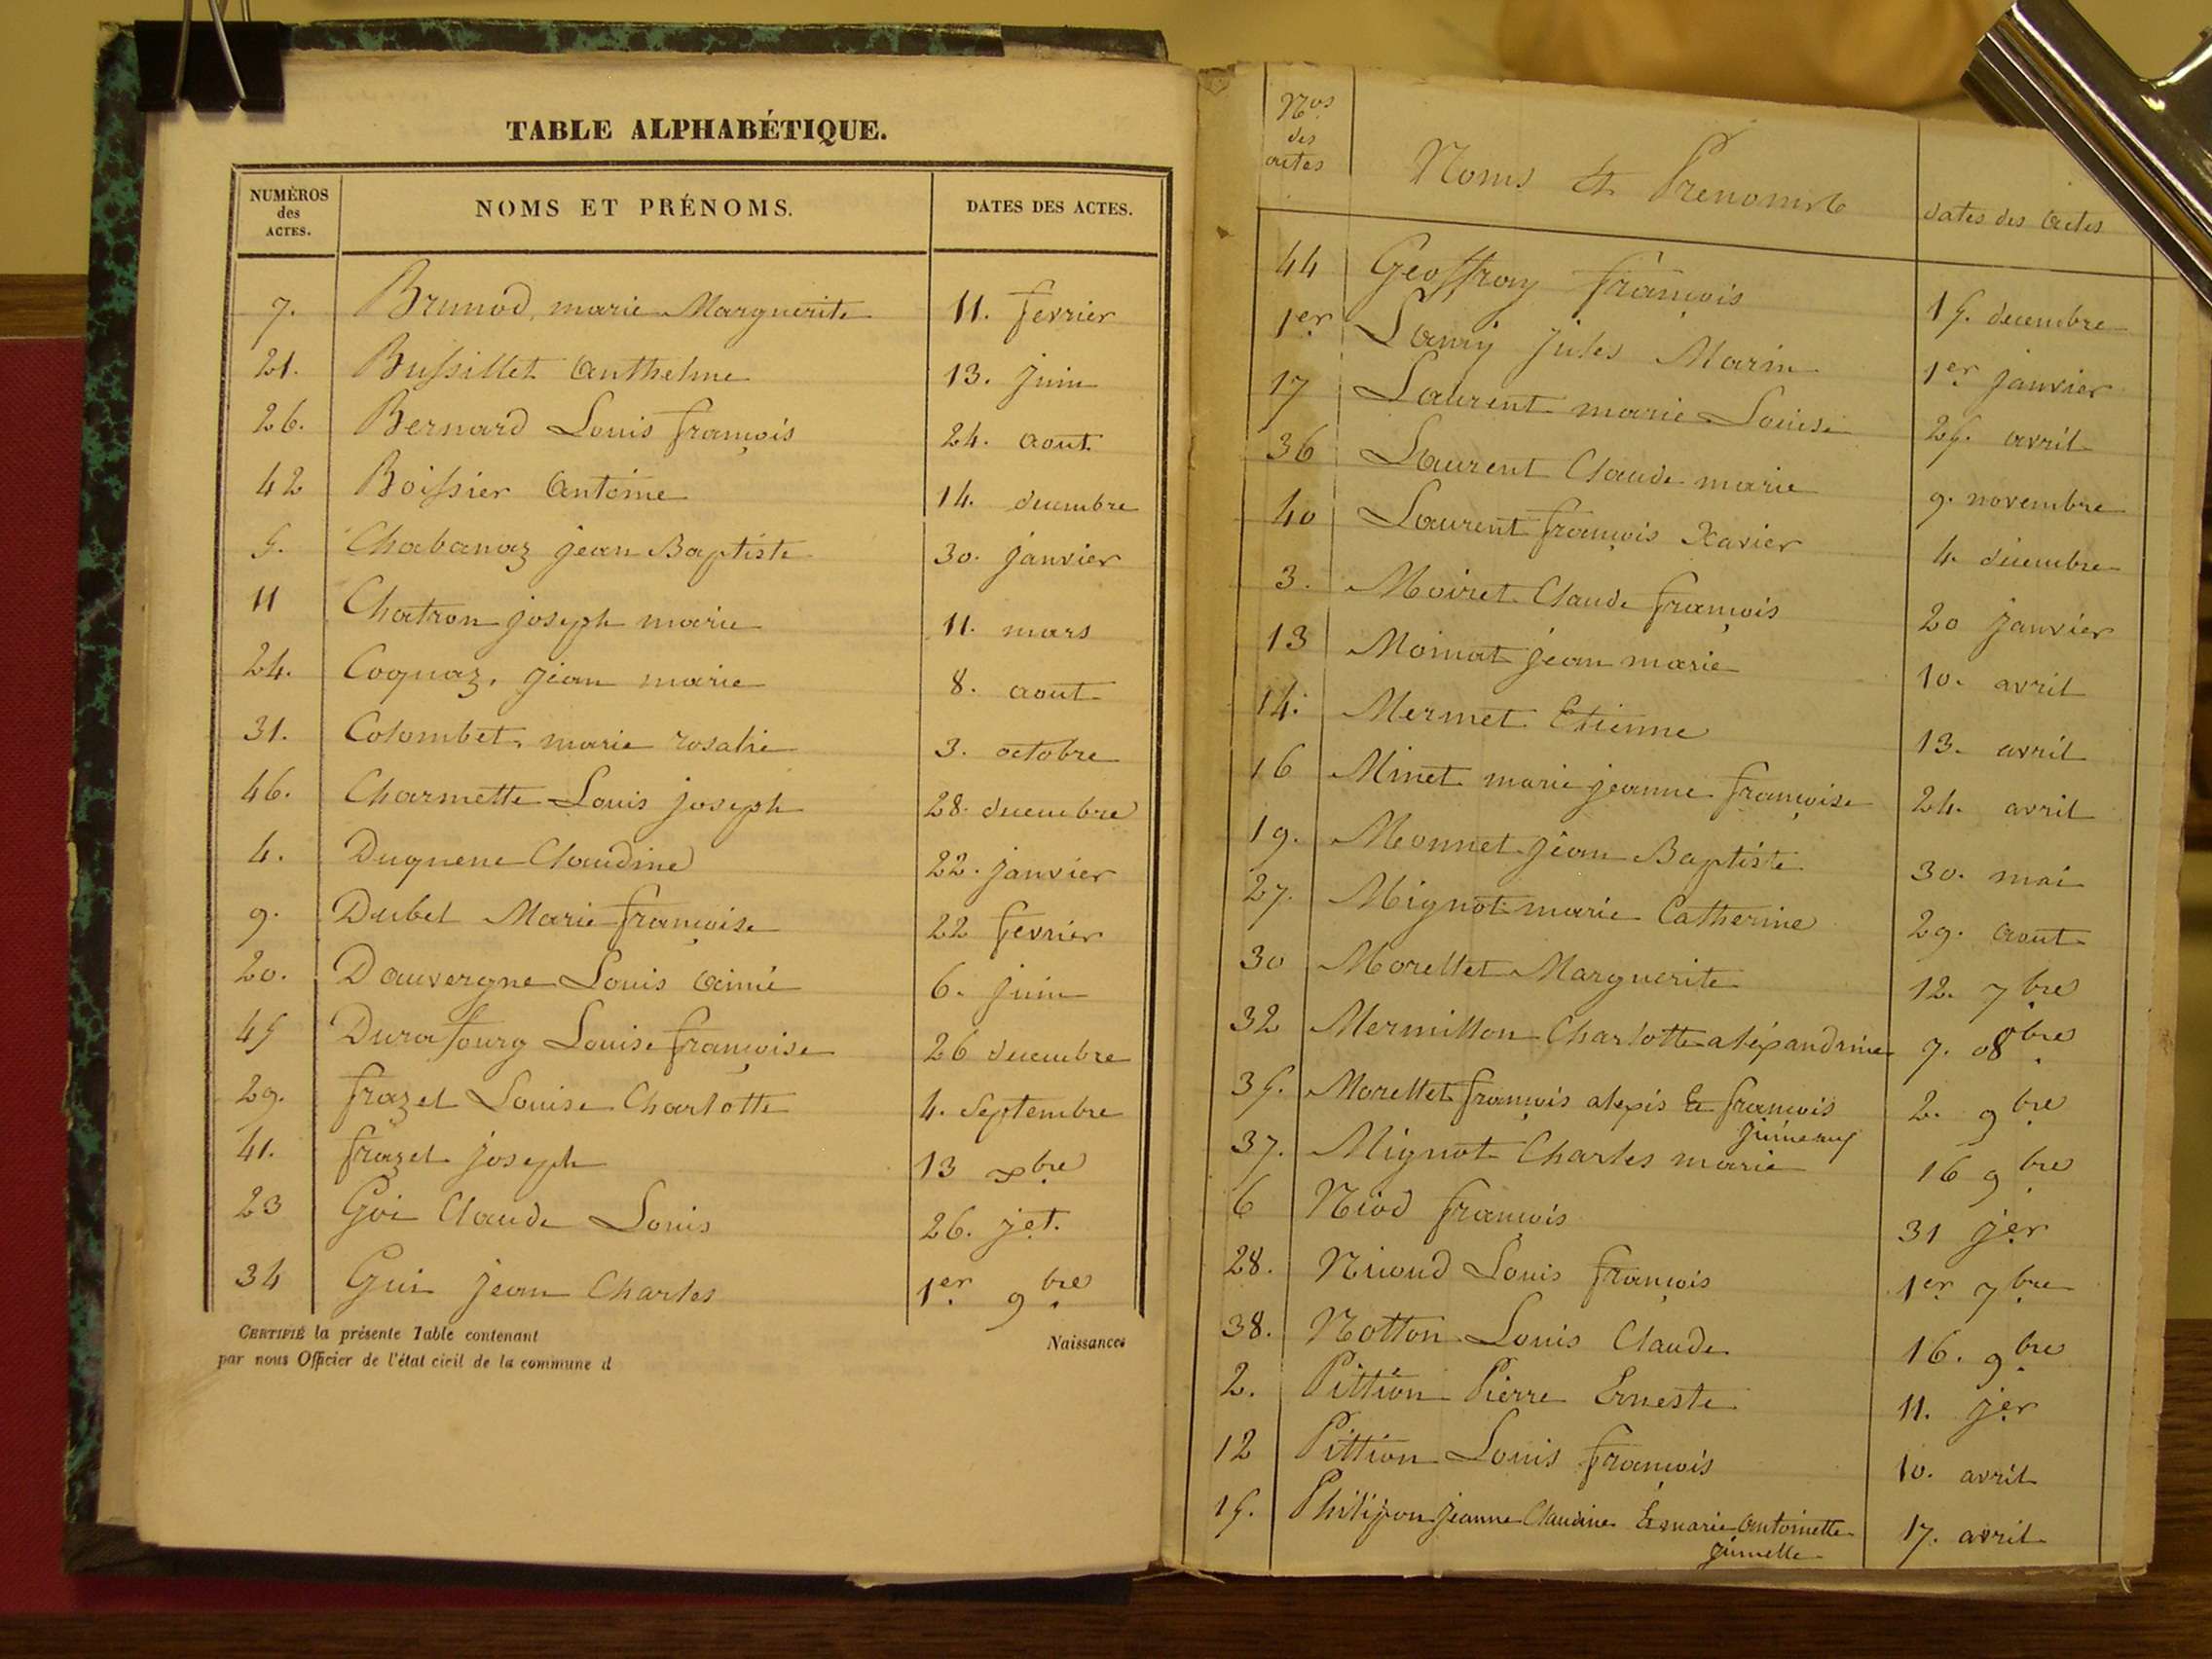 TABLE ALPHABÉTIQUE.
NUMÉROS des ACTES. NOMS ET PRÉNOMS. DATES DES ACTES.
7. Brunod, marie Marguerite 11. fevrier
21. Bussillet Anthelme 13. juin
26. Bernard Louis françois 24. aout
42 Boissier Antoine 14. decembre
5. Chabanaz jean Baptiste 30. janvier
11 Chatron joseph marie 11. mars
24. Coquaz, jean marie 8. aout
31. Colombet, marie rosalie 3. octobre
46. Charmette Louis joseph 28. decembre
4. Duquene Claudine 22. janvier
9. Dubet Marie françoise 22 fevrier
20. Dauvergne Louis Aimé 6. juin
45 Durafourg Louise françoise 26 decembre
29. frazet Louise Charlotte 4. Septembre
41. frazet joseph 13 xbre
23 Goi Claude Louis 26. jet.
34 Gui jean Charles 1er 9bre
CERTIFIÉ la présente Table contenant Naissances
par nous Officier de l'état civil de la commune d
Nos des actes Noms et Prenoms dates des actes
44 Geoffray françois 15. decembre
1er Lamy jules Marin 1er janvier
17 Laurent marie Louise 25. avril
36 Laurent Claude marie 9. novembre
40 Laurent françois Xavier 4. décembre
3. Moiret Claude françois 20 janvier
13 Moinat jean marie 10. avril
14. Mermet Etienne 13. avril
16 Minet marie jeanne françoise 24. avril
19. Monnet jean Baptiste 30. mai
27. Mignot marie Catherine 29. aout
30 Morellet Marguerite 12. 7bre
32 Mermillon Charlotte alexandrine 7. 8bre
35. Morellet françois alexis et françois 2. 9bre
jumeaux
37. Mignot Charles marie 16 9bre
6 Niod françois 31 jer
28. Nicoud Louis françois 1er 7bre
38. Notton Louis Claude 16. 9bre
2. Pittion Pierre Erneste 11. jer
12 Pittion Louis françois 10. avril
15. Philipon jeanne Claudine et marie Antoinette 17. avril
jumelle